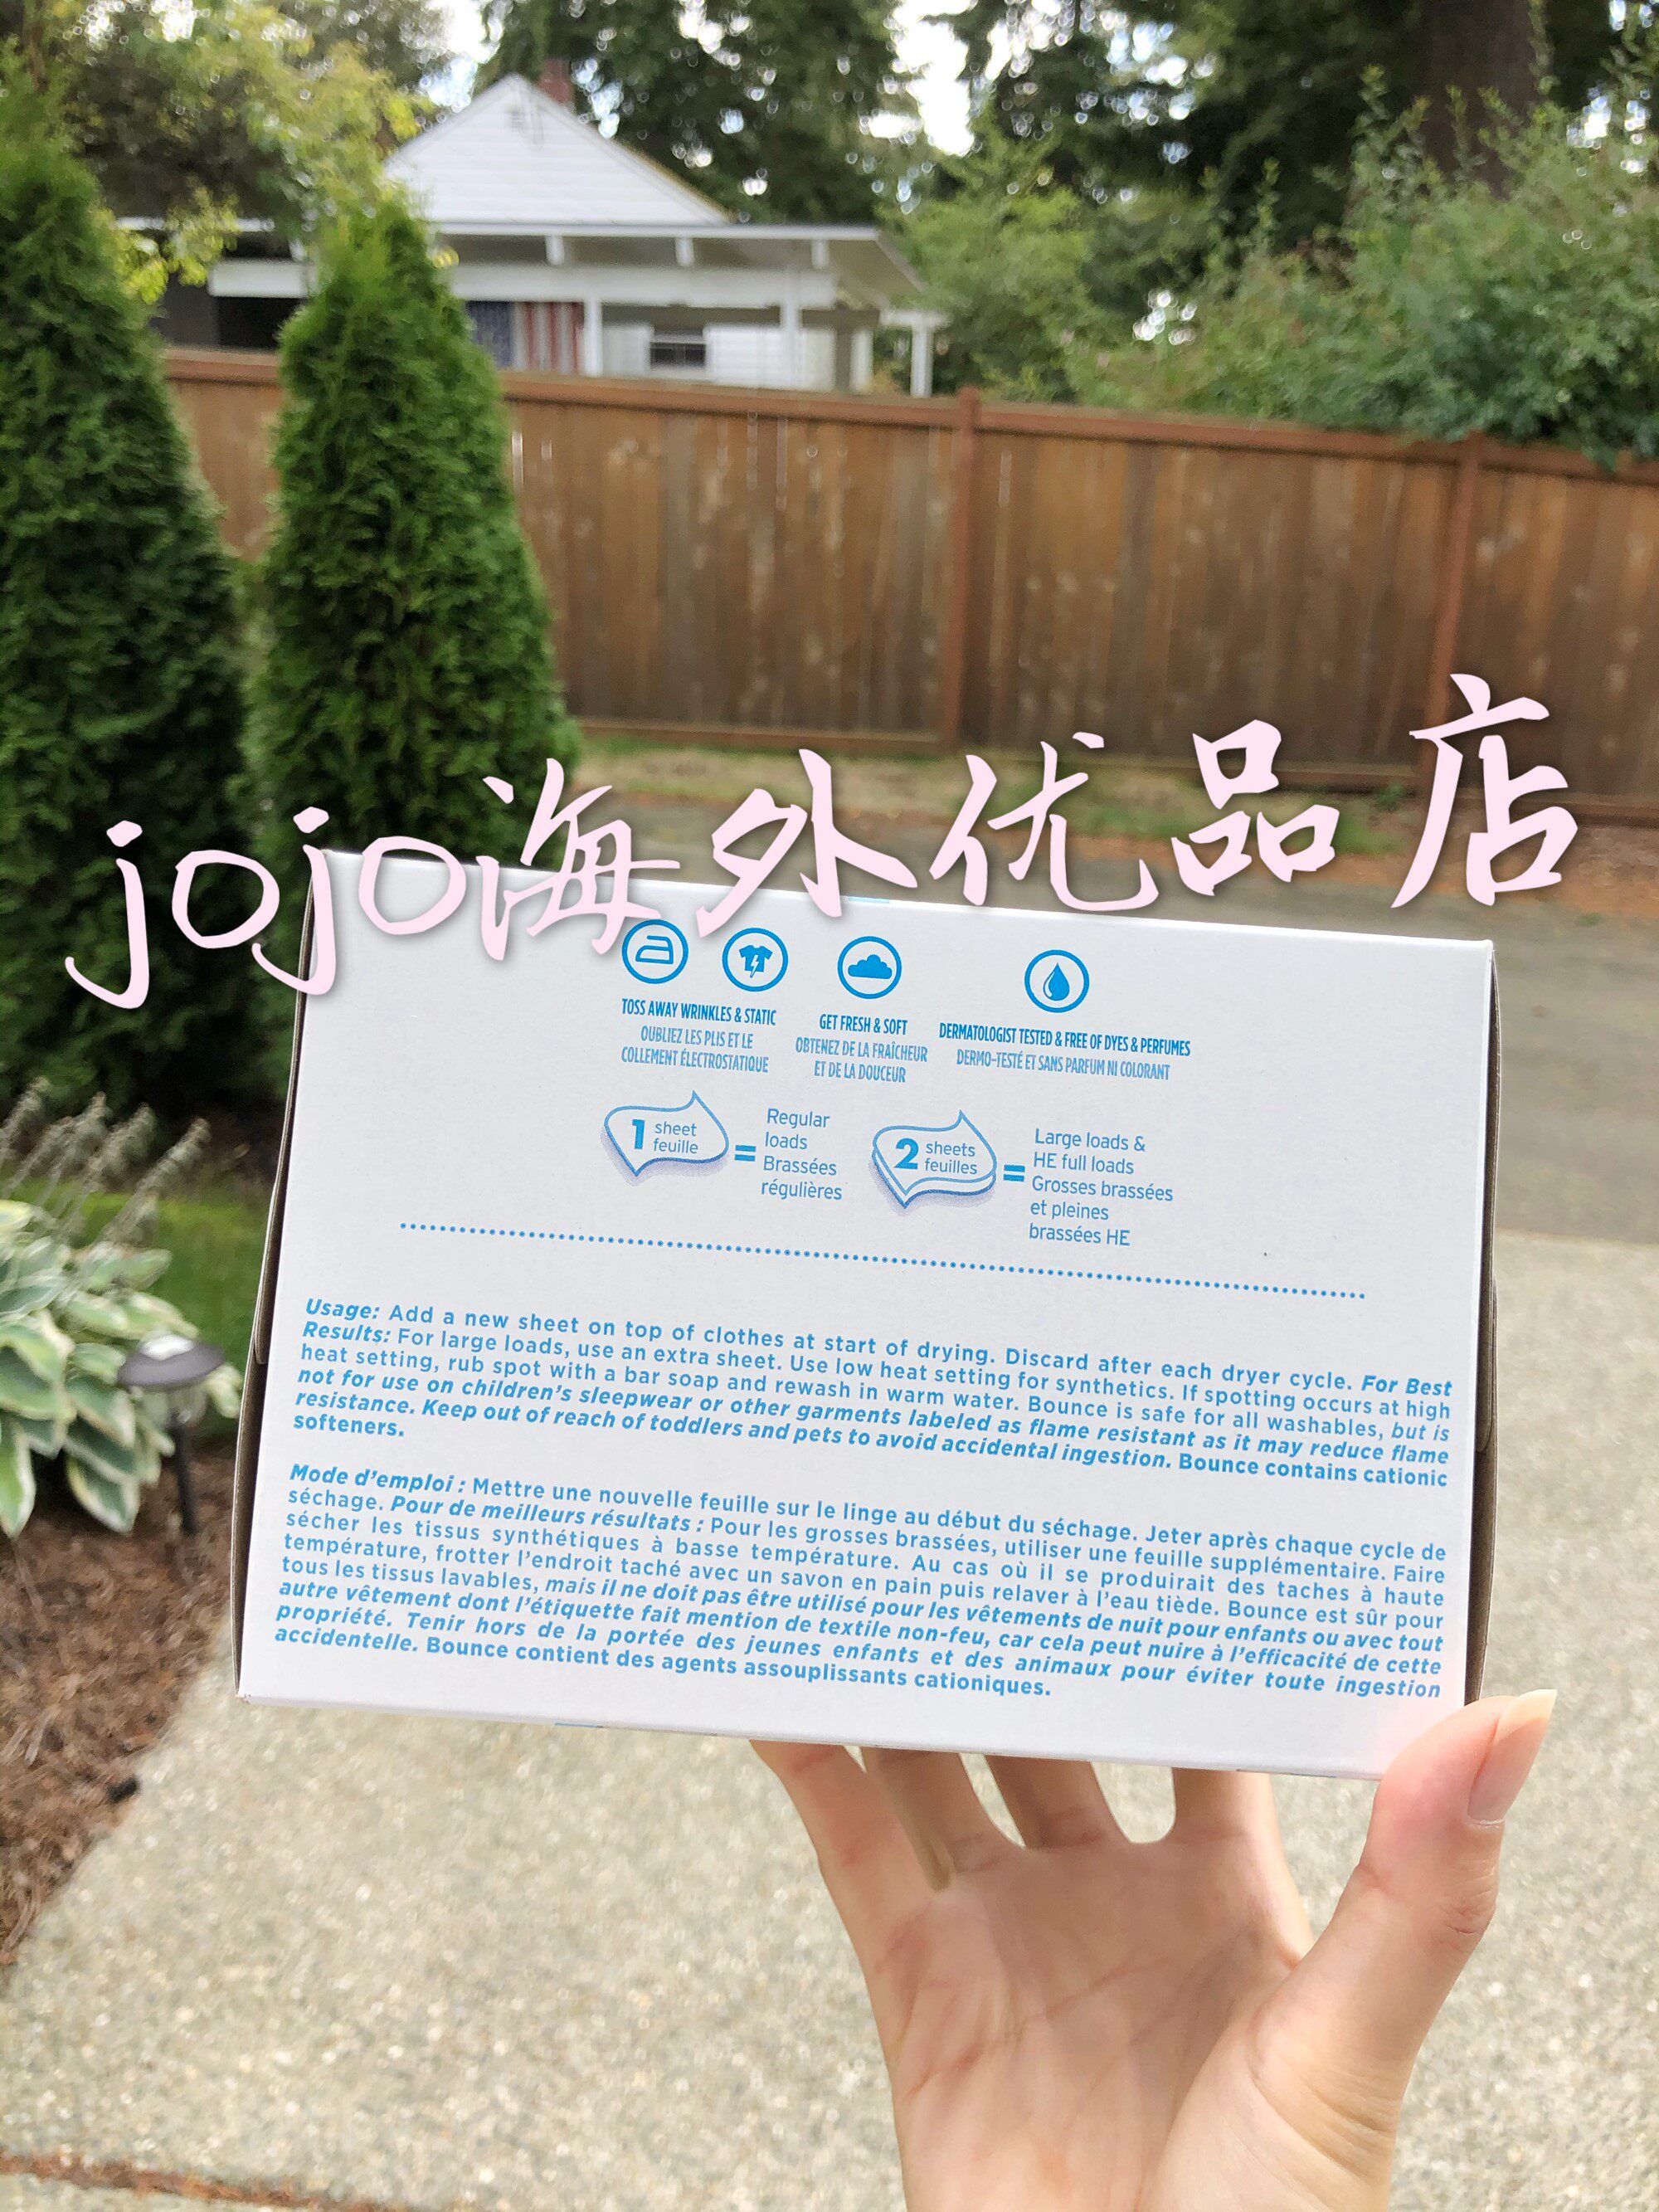 jojo海外优品店
TOSS AWAY WRINKLES & STATIC
OUBLIEZ LES PLIS ET LE
COLLEMENT ÉLECTROSTATIQUE
GET FRESH & SOFT
OBTENEZ DE LA FRAÎCHEUR
ET DE LA DOUCEUR
DERMATOLOGIST TESTED & FREE OF DYES & PERFUMES
DERMO-TESTÉ ET SANS PARFUM NI COLORANT
1 sheet
feuille
=
Regular
loads
Brassées
régulières
2 sheets
feuilles
=
Large loads &
HE full loads
Grosses brassées
et pleines
brassées HE
Usage: Add a new sheet on top of clothes at start of drying. Discard after each dryer cycle. For Best
Results: For large loads, use an extra sheet. Use low heat setting for synthetics. If spotting occurs at high
heat setting, rub spot with a bar soap and rewash in warm water. Bounce is safe for all washables, but is
not for use on children's sleepwear or other garments labeled as flame resistant as it may reduce flame
resistance. Keep out of reach of toddlers and pets to avoid accidental ingestion. Bounce contains cationic
softeners.
Mode d'emploi : Mettre une nouvelle feuille sur le linge au début du séchage. Jeter après chaque cycle de
séchage. Pour de meilleurs résultats : Pour les grosses brassées, utiliser une feuille supplémentaire. Faire
sécher les tissus synthétiques à basse température. Au cas où il se produirait des taches à haute
température, frotter l'endroit taché avec un savon en pain puis relaver à l'eau tiède. Bounce est sûr pour
tous les tissus lavables, mais il ne doit pas être utilisé pour les vêtements de nuit pour enfants ou avec tout
autre vêtement dont l'étiquette fait mention de textile non-feu, car cela peut nuire à l'efficacité de cette
propriété. Tenir hors de la portée des jeunes enfants et des animaux pour éviter toute ingestion
accidentelle. Bounce contient des agents assouplissants cationiques.